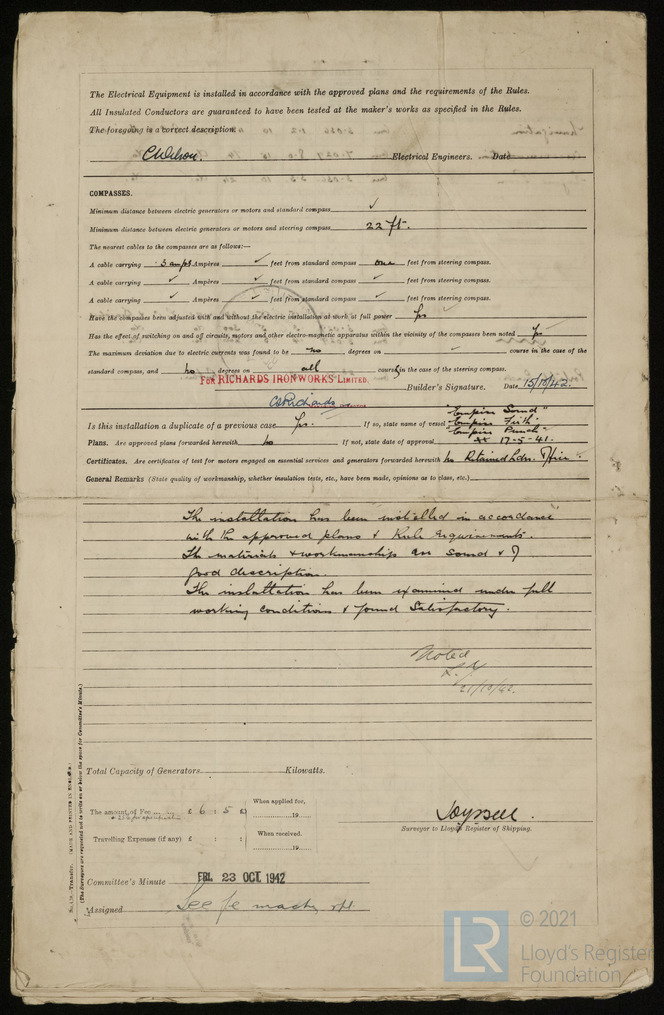 The Electrical Equipment is installed in accordance with the approved plans and the requirements of the Rules.
All Insulated Conductors are guaranteed to have been tested at the maker's works as specified in the Rules.
The foregoing is a correct description.
Electrical Engineers. Date
COMPASSES.
Minimum distance between electric generators or motors and standard compass ✓
Minimum distance between electric generators or motors and steering compass 22 ft.
The nearest cables to the compasses are as follows:—
A cable carrying 5 amps Ampères ✓ feet from standard compass one feet from steering compass.
A cable carrying ✓ Ampères ✓ feet from standard compass ✓ feet from steering compass.
A cable carrying ✓ Ampères ✓ feet from standard compass ✓ feet from steering compass.
Have the compasses been adjusted with and without the electric installation at work at full power Yes
Has the effect of switching on and off circuits, motors and other electro-magnetic apparatus within the vicinity of the compasses been noted Yes
The maximum deviation due to electric currents was found to be no degrees on ✓ course in the case of the
standard compass, and no degrees on all course in the case of the steering compass.
FOR RICHARDS IRONWORKS LIMITED.
Builder's Signature. Date 15/10/42.
Is this installation a duplicate of a previous case Yes. If so, state name of vessel "Empire Sound"
"Empire Firth"
"Empire Punch"
Plans. Are approved plans forwarded herewith no If not, state date of approval 17-5-41.
Certificates. Are certificates of test for motors engaged on essential services and generators forwarded herewith no Retained Ldn. Office.
General Remarks (State quality of workmanship, whether insulation tests, etc., have been made, opinions as to class, etc.)
The installation has been installed in accordance
with the approved plans & Rule Requirements.
The materials & workmanship are sound & of
good description.
The installation has been examined under full
working conditions & found satisfactory.
Noted
21/10/42.
Total Capacity of Generators Kilowatts.
The amount of Fee £ 6 : 5 : When applied for, 19
Travelling Expenses (if any) £ : : When received. 19
Surveyor to Lloyd's Register of Shipping.
Committee's Minute FRI. 23 OCT. 1942
Assigned See
(The Surveyors are requested not to write on or below the space for Committee's Minute.)
LR © 2021
Lloyd's Register
Foundation